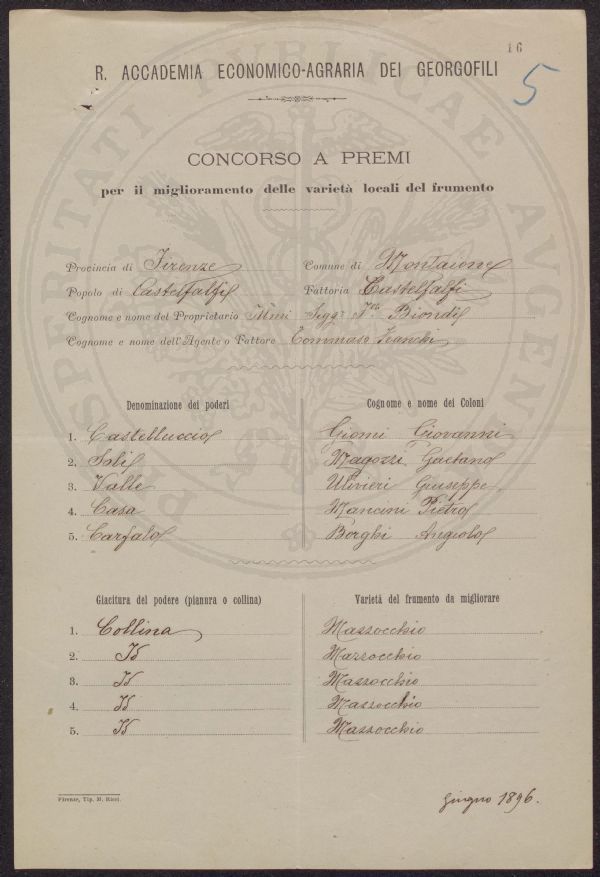 16
5
R. ACCADEMIA ECONOMICO-AGRARIA DEI GEORGOFILI
CONCORSO A PREMI
per il miglioramento delle varietà locali del frumento
Provincia di Firenze Comune di Montaione
Popolo di Castelfalfi Fattoria Castelfalfi
Cognome e nome del Proprietario Segg.ri F.lli Biondi
Cognome e nome dell'Agente o Fattore Tommaso Franchi
Denominazione dei poderi Cognome e nome dei Coloni
1. Castelluccio Giomi Giovanni
2. Magozzi Gaetano
3. Valle Ulivieri Giuseppe
4. Casa Mancini Pietro
5. Carfalo Borghi Angiolo
Giacitura del podere (pianura o collina) Varietà del frumento da migliorare
1. Collina Mazzocchio
2. Id Mazzocchio
3. Id Mazzocchio
4. Id Mazzocchio
5. Id Mazzocchio
Firenze, Tip. M. Ricci.
Giugno 1896.
PROSPERITATI PVBLICAE AVGENDAE